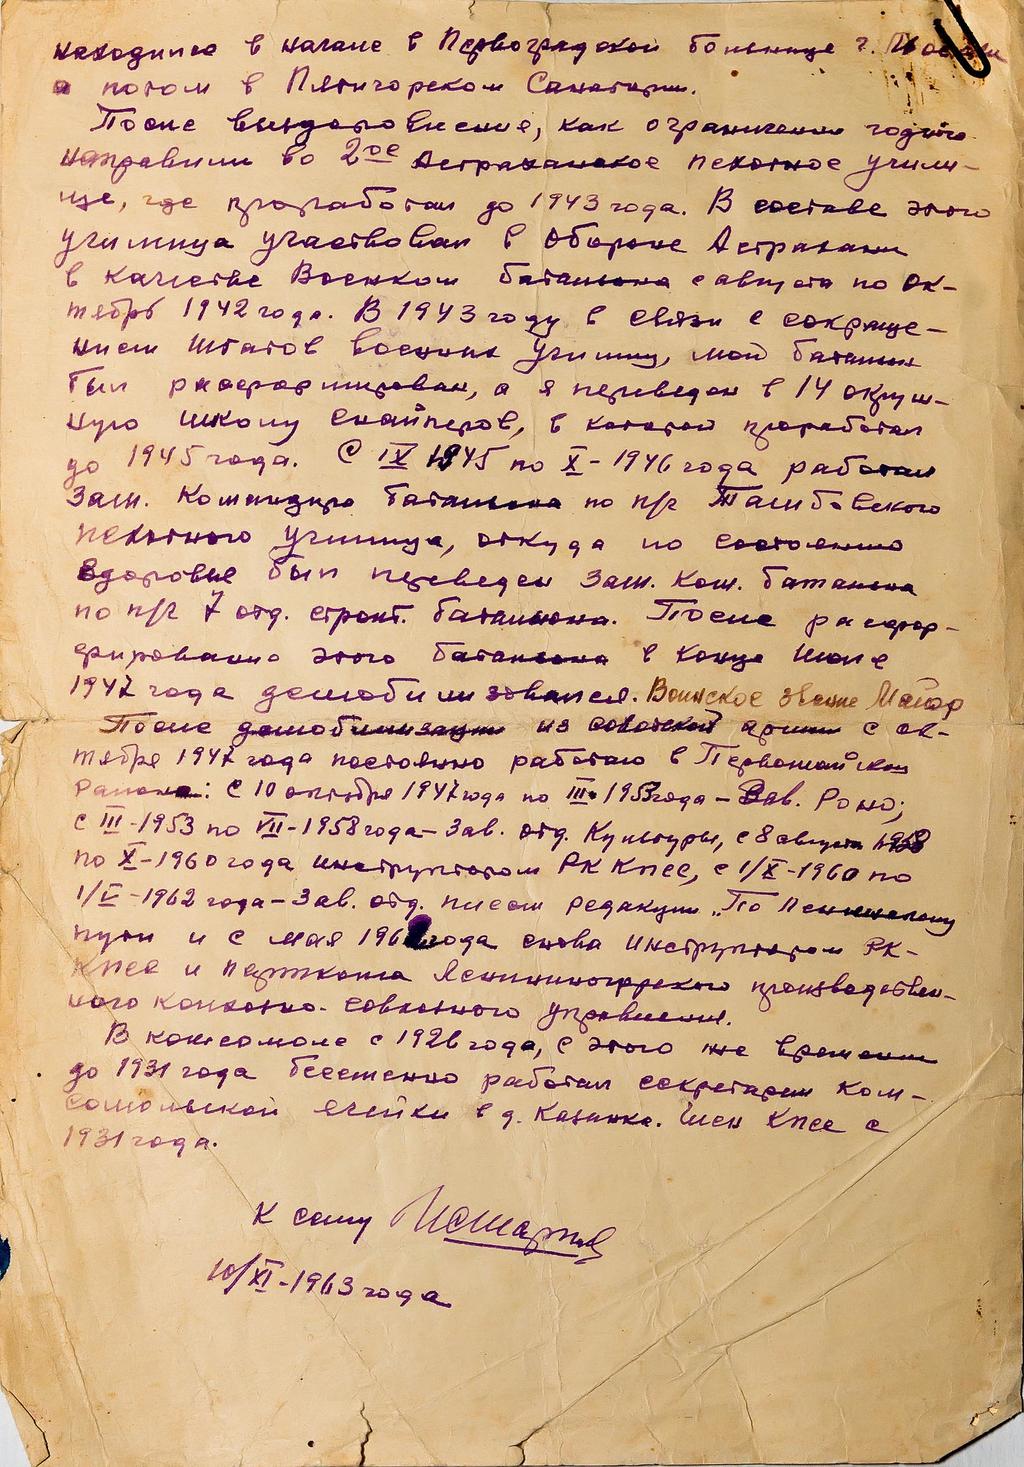 находился в начале в Первоградской больнице г. Москвы
а потом в Пятигорском Санатории.
После выздоровления, как ограниченно годного
направили во 2ое Астраханское пехотное учили-
ще, где проработал до 1943 года. В составе этого
училища участвовал в обороне Астрахани
в качестве Военком батальона с августа по ок-
тябрь 1942 года. В 1943 году в связи с сокраще-
нием штатов военных училищ, мой батальон
был расформирован, а я переведен в 14 окруж-
ную школу снайперов, в которой проработал
до 1945 года. С IX 1945 по X-1946 года работал
Зам. Командира батальона по п/ч Тамбовского
пехотного училища, откуда по состоянию
здоровье был переведен Зам. Ком. батальона
по п/ч 7 отд. строит. батальона. После расфор-
мирования этого батальона в конце июле
1947 года демобилизовался. Воинское звание Майор
После демобилизации из советской армии с ок-
тября 1947 года постоянно работаю в Первомайском
районе: С 10 октября 1947 года по III-1953 года - Зав. Роно;
с III-1953 по VII-1958 года - Зав. отд. Культуры, с 8 августа 1958
по X-1960 года инструктором РК Кпсс, с 1/X-1960 по
1/V-1962 года - Зав. отд. писем редакции „По Ленинскому
пути и с мая 1962 года снова инструктором РК-
Кпсс и парткома производствен-
ного колхозно-совхозного управления.
В комсомоле с 1926 года, с этого же времени
до 1931 года бессменно работал секретарем ком-
сомольской ячейки в д. Казинка. Член Кпсс с
1931 года.
К сему
10/XI-1963 года